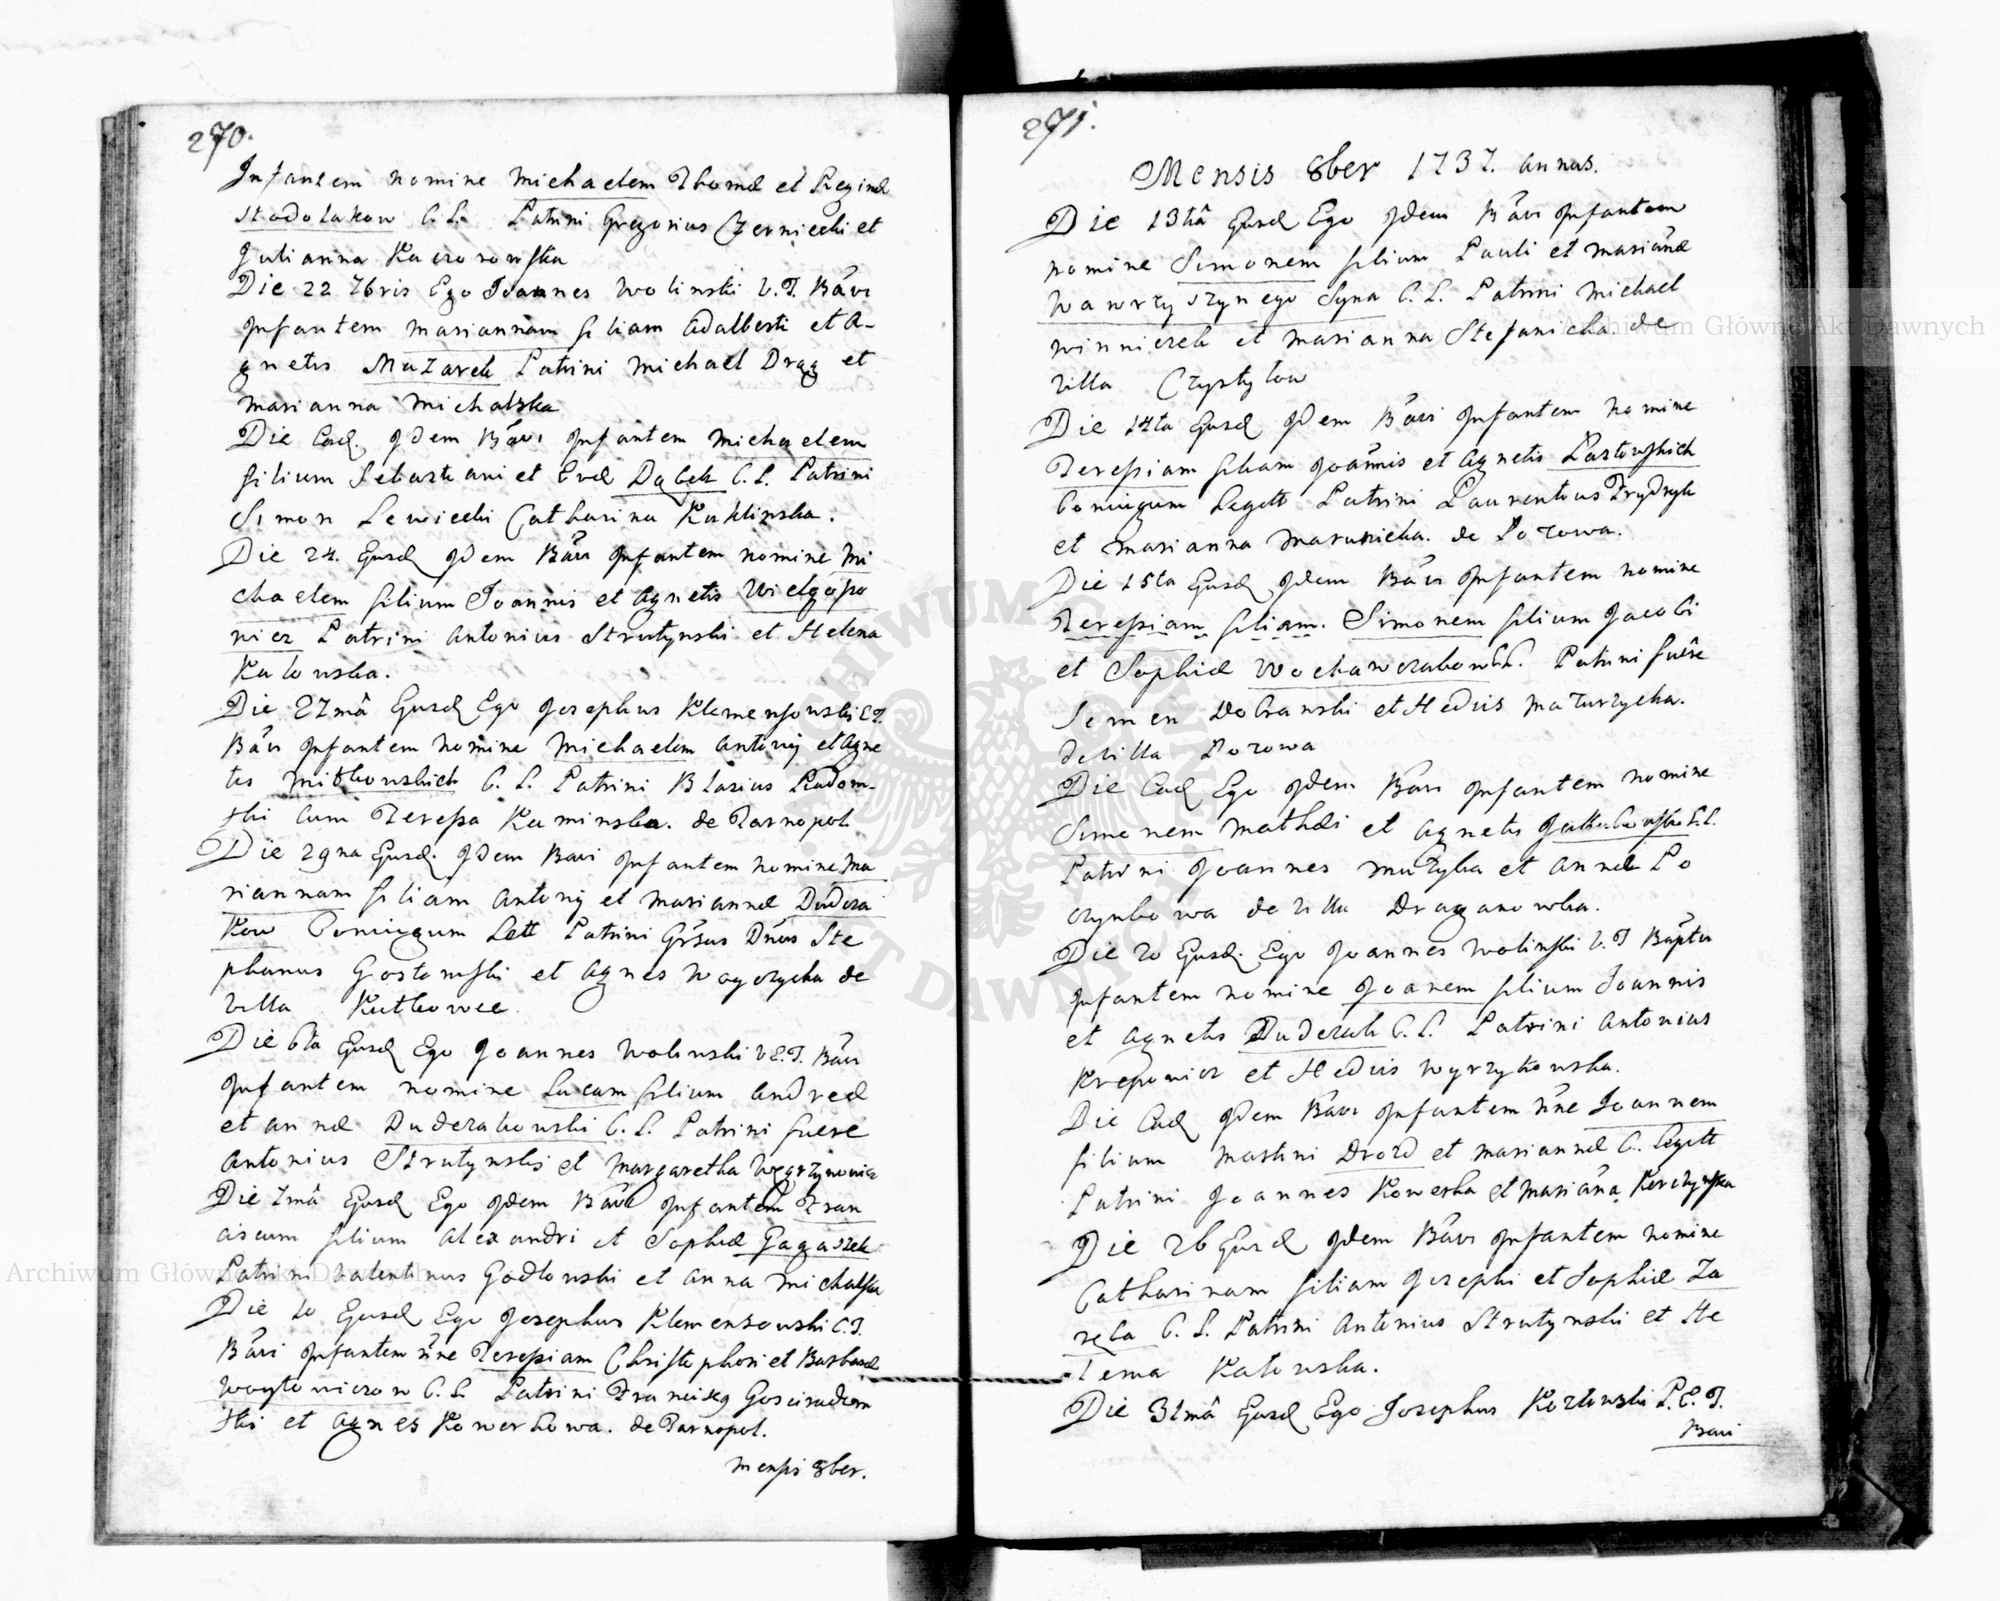 270.
Infantem nomine Michaelem Thomæ et Reginæ
Stodolakow C. L. Patrini Gregorius Czerniecki et
Julianna Kaczorowska
Die 22 7bris Ego Joannes Wolinski V. T. Bavi
Infantem Mariannam filiam Adalberti et A-
gnetis Mazarek Patrini Michael Drag et
Marianna Michalska
Die Ead. Idem Bavi Infantem Michaelem
filium Sebastiani et Evæ Dąbek C. L. Patrini
Simon Lewicki Catharina Kuklinska.
Die 24. Ejusd Idem Bavi Infantem nomine Mi
chaelem filium Joannis et Agnetis Wielgopo
nicz Patrini Antonius Strutynski et Helena
Katowska.
Die 27mâ Ejusd Ego Josephus Klemensowski C. T.
Bavi Infantem nomine Michaelem Antonij et Agne
tis Mitkowskich C. L. Patrini Blasius Radom-
ski cum Teressa Kaminska. de Tarnopol
Die 29na Ejusd. Idem Bavi Infantem nomine Ma
riannam filiam Antonij et Mariannæ Dudcza
kow Coniugum Lett Patrini Grsus Dnus Ste
phanus Gostomski et Agnes Wayczycha de
villa Kutkowce.
Die 6ta Ejusd Ego Joannes Wolinski V. E. T. Bavi
Infantem nomine Lucam filium Andreæ
et Annæ Duderakowski C. L. Patrini fuere
Antonius Strutynski et Margaretha Węgrzynowicz
Die 7mâ Ejusd Ego Idem Bavi Infantem Fran
ciscum filium Alexandri et Sophiæ Gagaszek
Patrini Valentinus Godlowski et Anna Michalska
Die 10 Ejusd Ego Josephus Klemensowski C. T.
Bavi Infantem nne Teressiam Christophori et Barbaræ
Woytowiczow C. L. Patrini Franciscq Gosciradzew
ski et Agnes Kowerkowa. de Tarnopol.
Mensis 8ber.
271.
Mensis 8ber 1737. annus.
Die 13tiâ Ejusd Ego Idem Bavi Infantem
nomine Simonem filium Pauli et Marianæ
Wawrzyszynego Syna C. L. Patrini Michael
Winniczek et Marianna Stefanicha de
villa Czystylow
Die 14ta Ejusd Idem Bavi Infantem nomine
Teressiam filiam Joannis et Agnetis Pastowskich
Coniugum Legitt Patrini Laurentius Frydryk
et Marianna Marunicha. de Pozowa.
Die 15ta Ejusd Idem Bavi Infantem nomine
Teressiam filiam. Simonem filium Jacobi
et Sophiæ Patrini fuêre
Semen Dobranski et Hedvis Mazurzycha.
de villa Dorowa
Die Ead Ego Idem Bavi Infantem nomine
Simonem Mathæi et Agnetis C. L.
Patrini Joannes Muzyka et Annæ Po
czynkowa de villa Draganowka.
Die 20 Ejusd. Ego Joannes Wolinski V. T Baptavi
Infantem nomine Joanem filium Joannis
et Agnetis Duderak C. L. Patrini Antonius
Kreponicz et Hedvis Wyrzykowska.
Die Ead Idem Bavi Infantem nne Joannem
filium Martini Drozd et Mariannæ C. Legitt
Patrini Joannes Kowerka et Mariana Korczynska
Die 26 Ejusd Idem Bavi Infantem nomine
Catharinam filiam Josephi et Sophiæ Za
ręba C. L. Patrini Antonius Strutynski et He
lena Katowska.
Die 31mâ Ejusd Ego Josephus Kozlowski P. E. T.
Bavi
Archiwum Główne Akt Dawnych
Archiwum Główne Akt Dawnych
ARCHIWUM GŁÓWNE AKT DAWNYCH